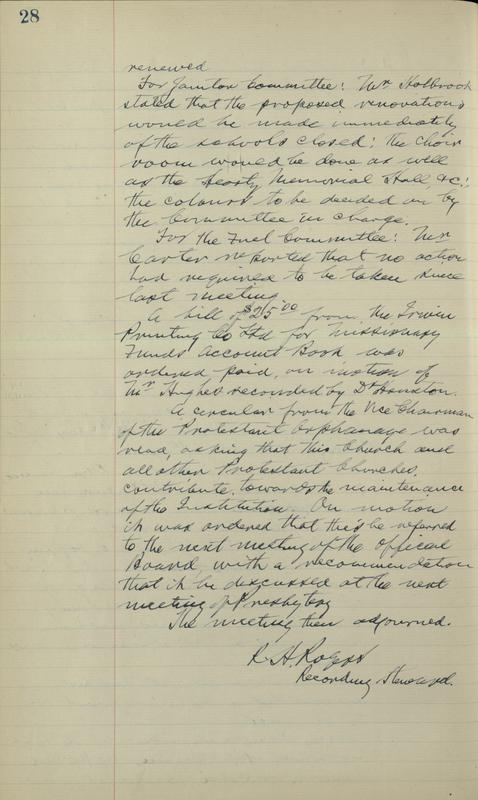 28
renewed
For Janitor Committee: Mr Holbrook
stated that the proposed renovations
would be made immediately
of the schools closed: the choir
room would be done as well
as the Memorial Hall, &c:
the colours to be decided on by
the Committee in charge.
For the Fuel Committee: Mr
Carter reported that no action
had required to be taken since
last meeting
A bill of $25.00 from the Irwin
Printing Co Ltd for Missionary
Funds Account Book was
ordered paid, on motion of
Mr Hughes seconded by Dr
A circular from the Vice Chairman
of the Protestant Orphanage was
read, asking that this Church and
all other Protestant Churches,
contribute towards the maintenance
of the Institution. On motion
it was ordered that this be referred
to the next meeting of the Official
Board, with a recommendation
that it be discussed at the next
meeting of Presbytery
The meeting then adjourned.
R. H.
Recording Steward.